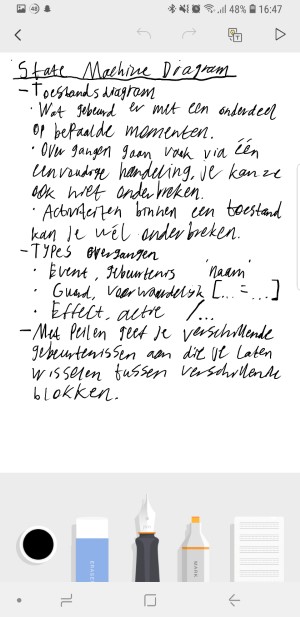 48% 16:47
State Machine Diagram
- Toestandsdiagram
· Wat gebeurd er met een onderdeel
op bepaalde momenten.
· Overgangen gaan vaak via één
eenvoudige handeling, je kan ze
ook niet onderbreken.
· Activiteiten binnen een toestand
kan je wél onderbreken.
- Types overgangen
· Event, gebeurtenis 'naam'
· Guard, voorwaardelijk [... = ...]
· Effect, actie /...
- Met Peilen geef je verschillende
gebeurtenissen aan die je laten
wisselen tussen verschillende
blokken.